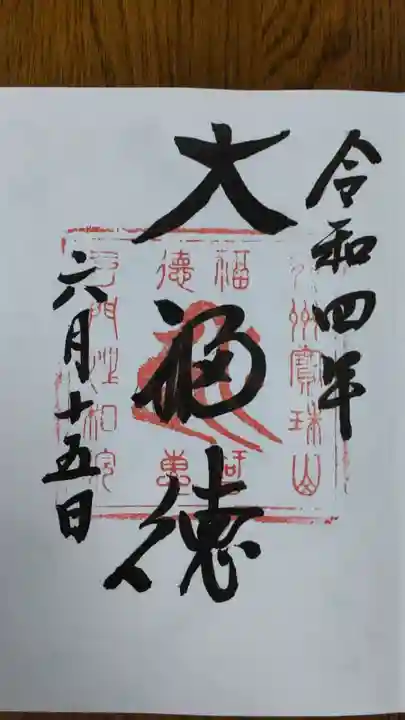 令和四年
大福徳
六月十五日
州寶珠山
福
德